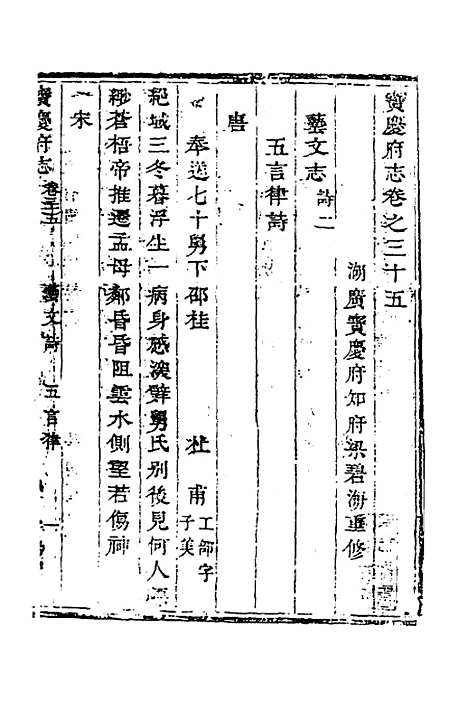 寶慶府志卷之三十五
湖廣寶慶府知府梁碧海重修
藝文志 詩二
五言律詩
唐
奉送七十舅下邵桂 杜甫 工部字子美
絕域三冬暮浮生一病身感深辭舅氏別後見何人
緲蒼梧帝推遷孟母鄰昏昏阻雲水側望若傷神
宋
寶慶府志 卷三十五 藝文詩 五言律 一